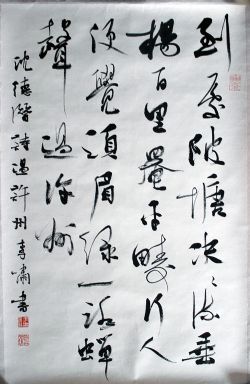 到處陂塘决々流垂
楊百里罨平疇行人
便覺須眉綠一路蟬
聲過許州
沈德潛詩過許州 李嘯書